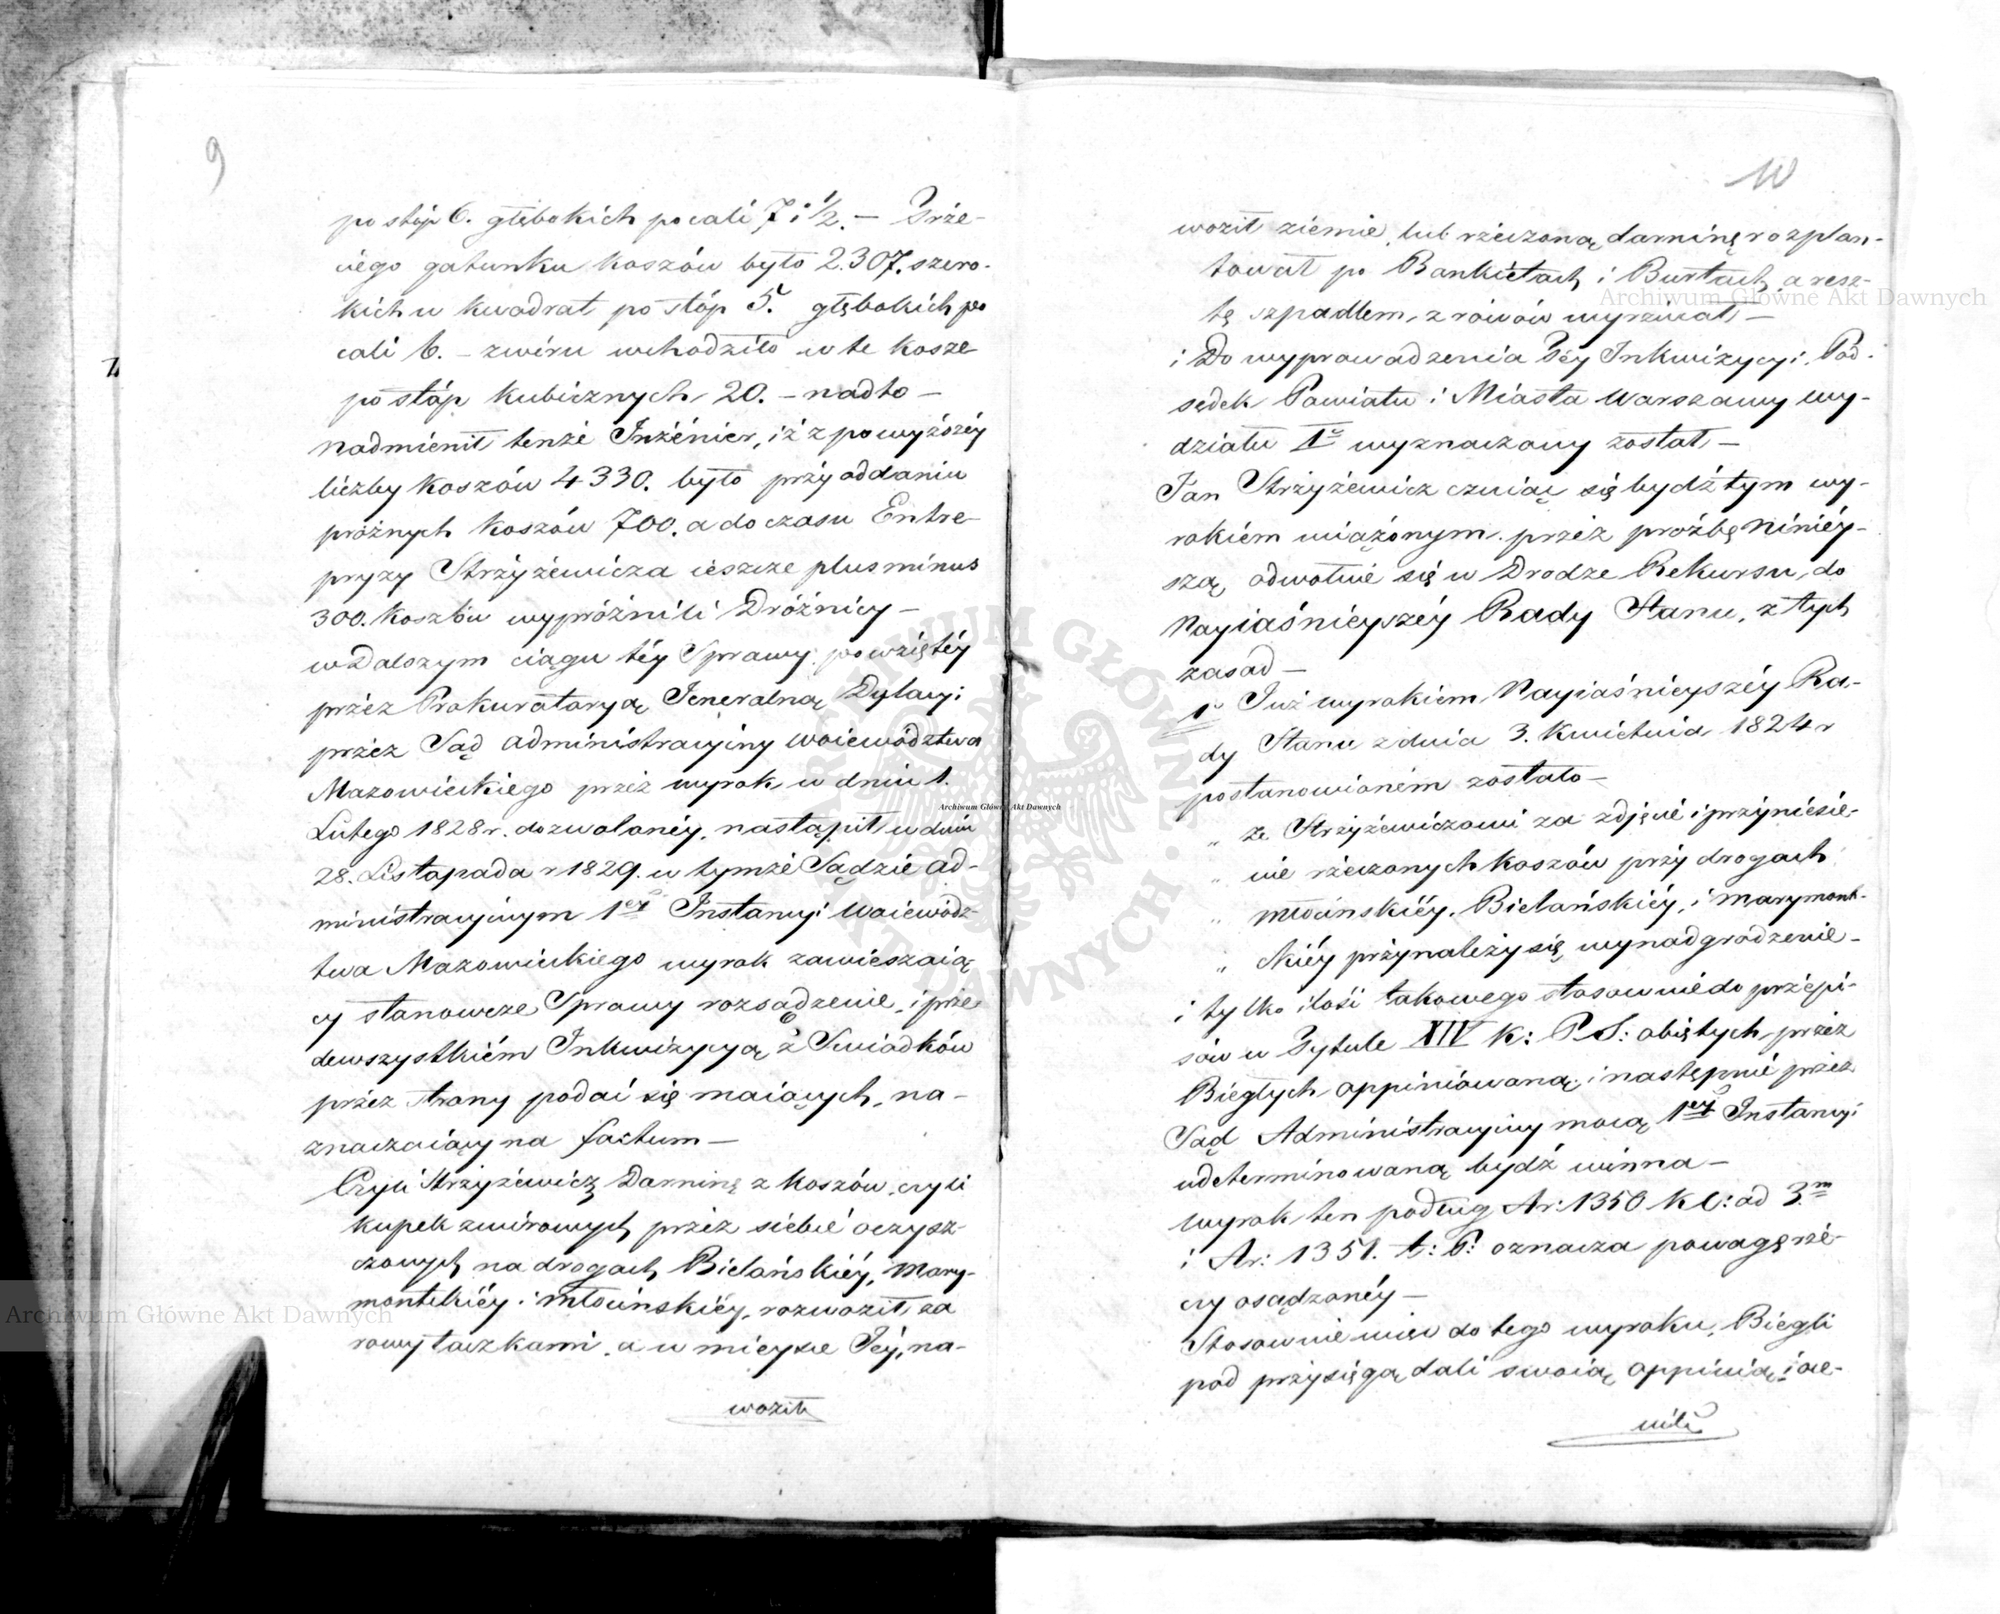 9
po stóp 6. głębokich po cali 7 i 1/2. — Trze-
ciego gatunku koszów było 2.307. szero-
kich w kwadrat po stóp 5. głębokich po
cali 6. – zwiru wchodziło w te kosze
po stóp kubicznych 20. – nadto –
nadmienił tenże Inżénier, iż z powyższéy
liczby koszów 4330. było przy oddaniu
próżnych koszów 700. a do czasu Entre-
pryzy Strzyżewicza ieszcze plus minus
300. koszów wypróżnili Dróżnicy –
w Dalszym ciągu téy Sprawy powziętéy
przez Prokuratoryą Jeneralną Dylacyi
przez Sąd Administracyiny Woiewództwa
Mazowieckiego przez wyrok w dniu 1.
Lutego 1828 r. dozwolonéy, nastąpił w dniu
28. Listopada r 1829. w tymże Sądzie Ad-
ministracyinym 1ey Instancyi Woiewódz-
twa Mazowieckiego wyrok zawieszaią
cy stanowcze Sprawy rozsądzenie, i prze
dewszystkiém Inkwizycyą z Swiadków
przez strony podać się maiących, na-
znaczaiący na factum –
Czyli Strzyżewicz Darninę z koszów, czyli
kupek zwirowych przez siebie oczysz-
czonych na drogach Bielańskiéy, Mary-
montskiéy i Młocińskiéy, rozwoził za
rowy taczkami, a w mieysce Jéy, na-
woził
10
woził ziemie, lub rzeczoną darninę rozplan-
tował po Bankietach i Burtach, a resz-
tę szpadlem, z rowów wyrzucał –
i Do wyprowadzenia Téy Inkwizycyi, Pod-
sędek Powiatu i Miasta Warszawy wy-
działu 1º wyznaczony został –
Jan Strzyżewicz czuiąc się bydź tym wy-
rokiém uciążonym, przez prozbę niniéy-
szą odwołuie się w Drodze Rekursu, do
Nayiaśnieyszéy Rady Stanu, z tych
zasad –
1º Już wyrokiem Nayiaśnieyszéy Ra-
dy Stanu z dnia 3. Kwietnia 1824 r
postanowioném zostało –
„ że Strzyżewiczowi za zdjęcie i przyniesie-
„ nie rzeczonych koszów przy drogach
„ Młocinskiéy, Bielańskiéy, i marymont-
„ skiéy przynależy się wynadgrodzenie –
i tylko ilość takowego stosownie do przepi-
sów w Tytule XIV K: P. S: obiętych przez
Biegłych oppiniowaną, i następnie przez
Sąd Administracyiny mocą 1ey Instancyi
udeterminowaną bydź winna –
Wyrok ten podług Ar: 1350 K C: ad 3.m
i Ar: 1351. t: P: oznacza powagę rze-
czy osądzonéy –
Stosownie więc do tego wyroku, Biegli
pod przysięgą dali swoią oppinią, i oce-
nili
Archiwum Główne Akt Dawnych
Archiwum Główne Akt Dawnych
Archiwum Główne Akt Dawnych
ARCHIWUM GŁÓWNE AKT DAWNYCH